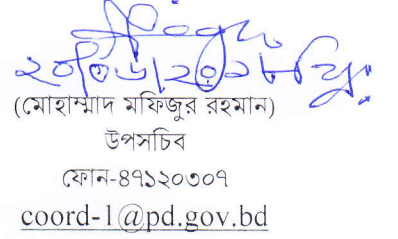 ২০/০৬/২০১৮খ্রি.
(মোহাম্মাদ মফিজুর রহমান)
উপসচিব
ফোন-৪৭১২০৩০৭
coord-1@pd.gov.bd